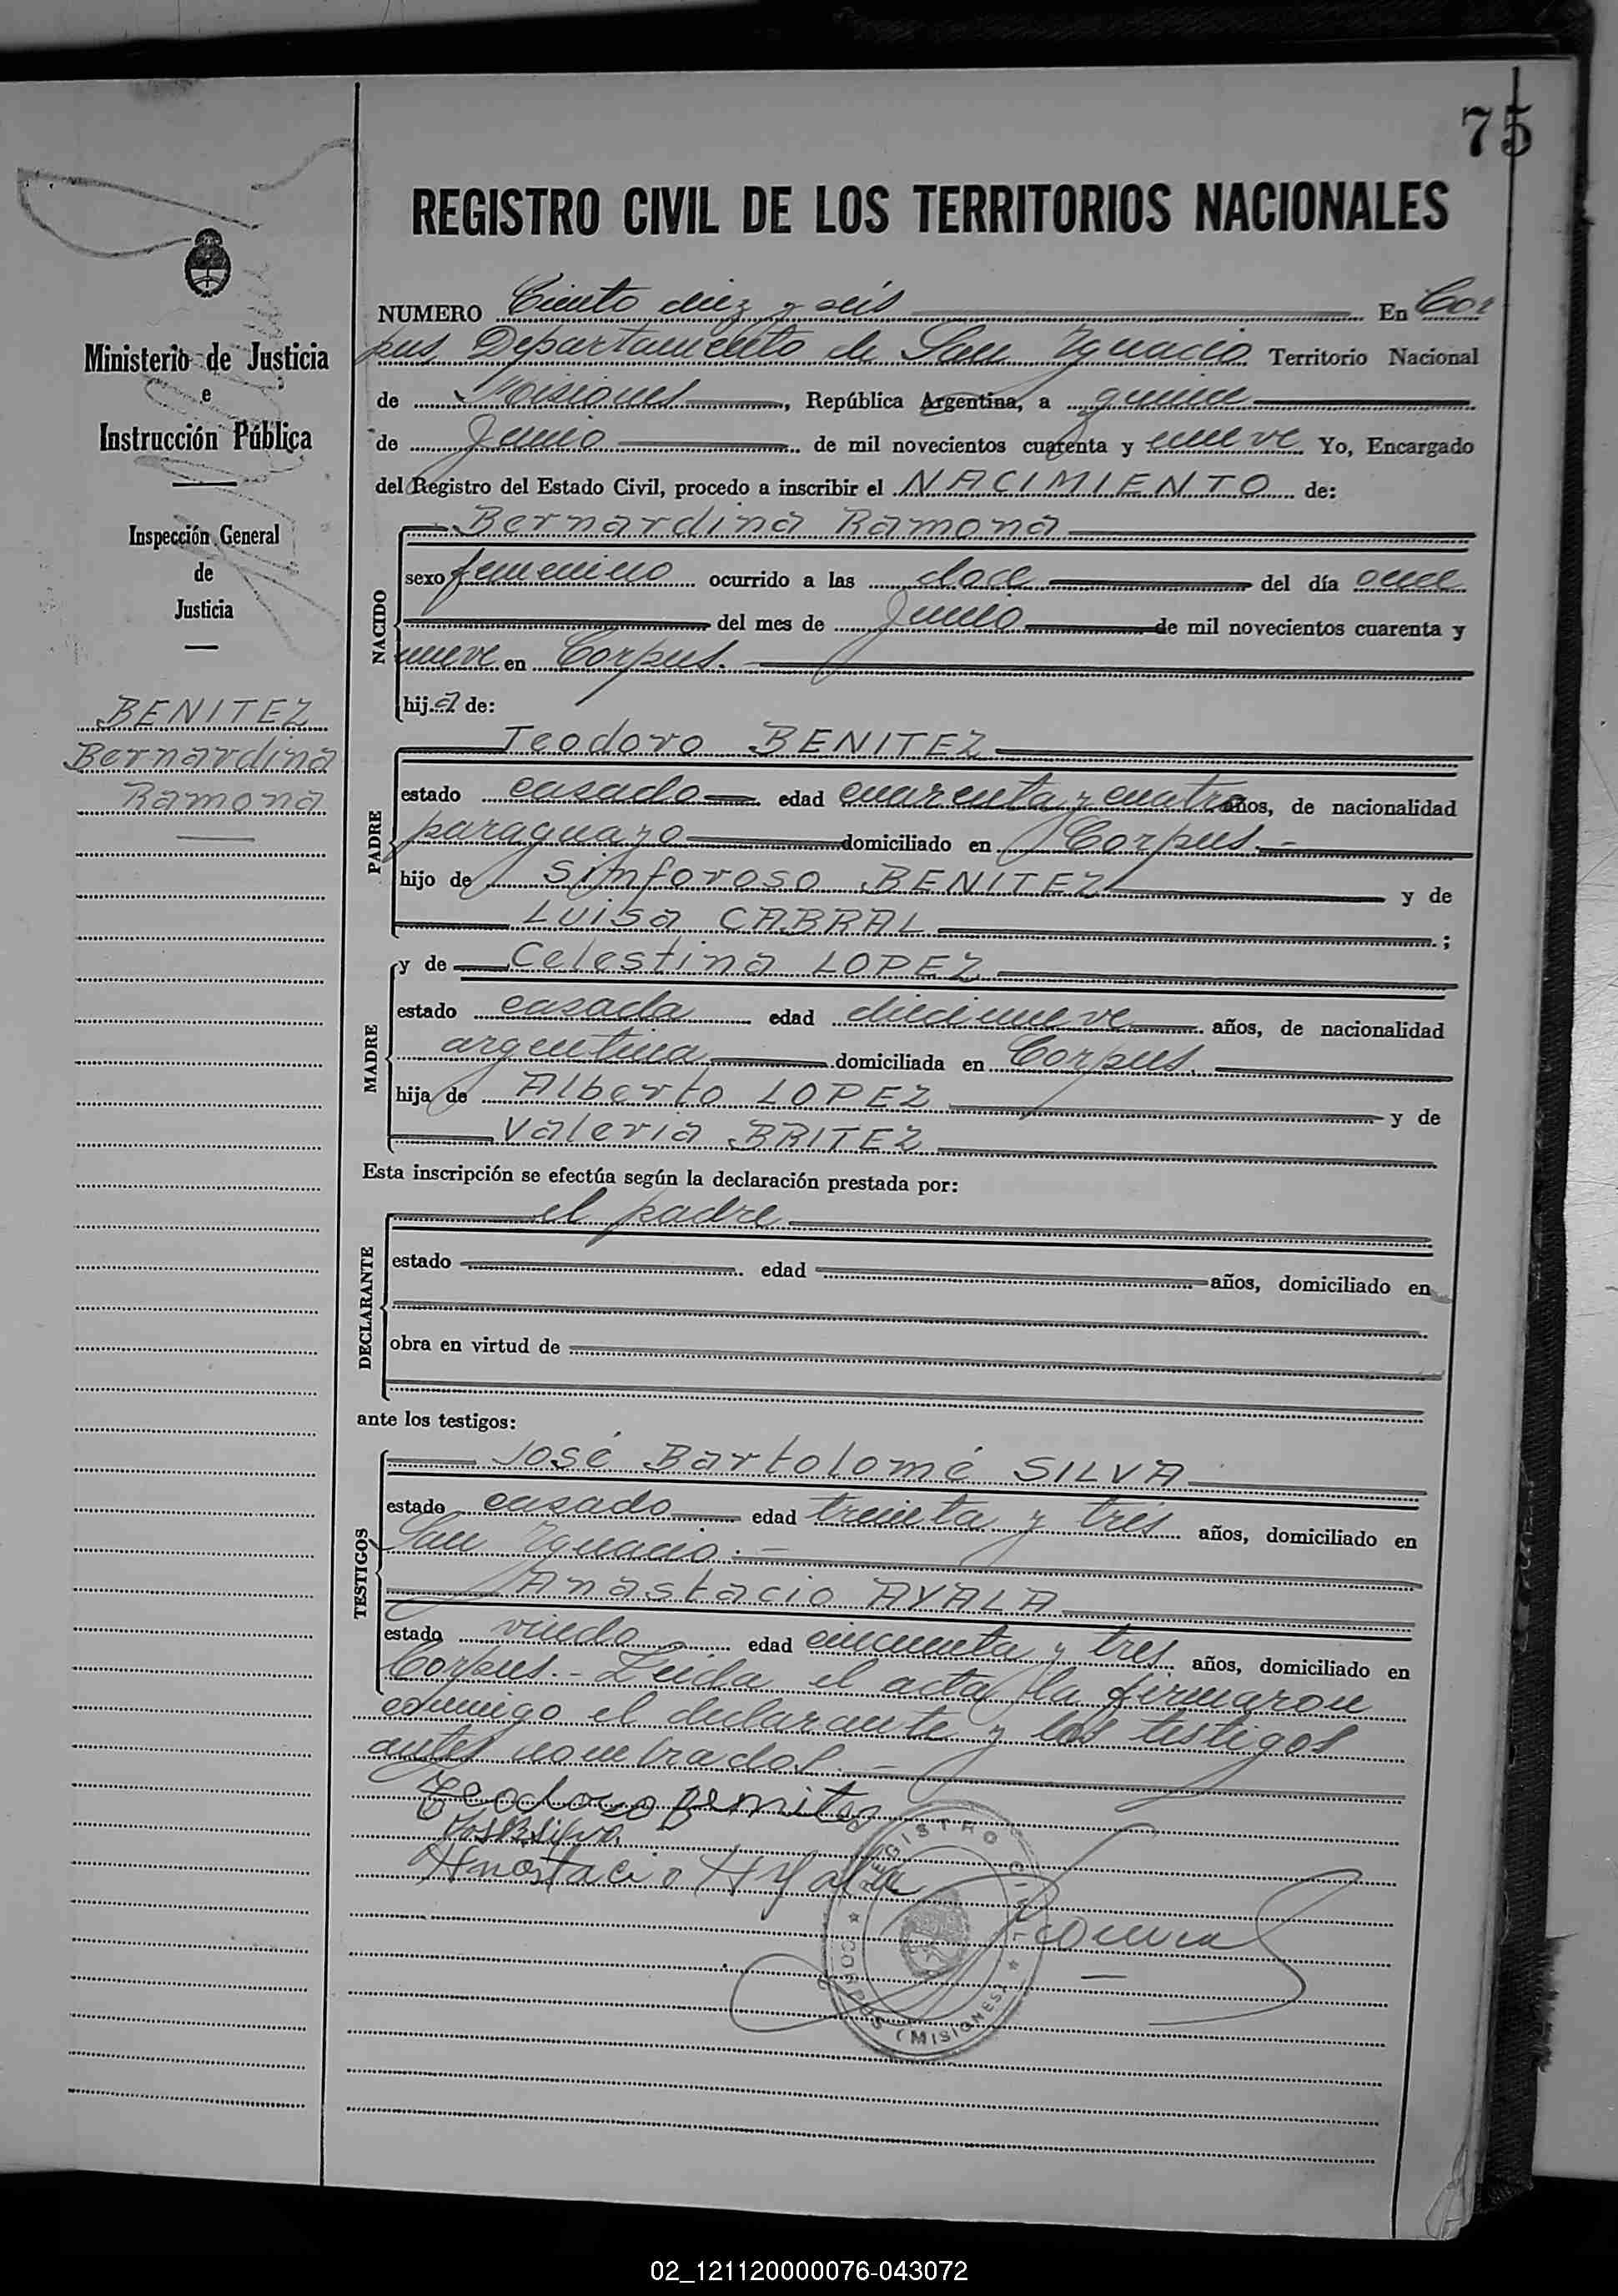 75
REGISTRO CIVIL DE LOS TERRITORIOS NACIONALES
Ministerio de Justicia
e
Instrucción Pública
Inspección General
de
Justicia
BENITEZ
Bernardina
Ramona
NUMERO Ciento diez y seis En Cor
pus Departamento de San Ygnacio Territorio Nacional
de Misiones, República Argentina, a quince
de Junio de mil novecientos cuarenta y nueve Yo, Encargado
del Registro del Estado Civil, procedo a inscribir el NACIMIENTO de:
NACIDO
Bernardina Ramona
sexo femenino ocurrido a las doce del día once
del mes de Junio de mil novecientos cuarenta y
nueve en Corpus.
hija de:
PADRE
Teodoro BENITEZ
estado casado edad cuarenta y cuatro años, de nacionalidad
paraguayo domiciliado en Corpus.-
hijo de Simforoso BENITEZ y de
Luisa CABRAL ;
MADRE
y de Celestina LOPEZ
estado casada edad diecinueve años, de nacionalidad
argentina domiciliada en Corpus.
hija de Alberto LOPEZ y de
Valeria BRITEZ
Esta inscripción se efectúa según la declaración prestada por:
DECLARANTE
el padre
estado edad años, domiciliado en
obra en virtud de
ante los testigos:
TESTIGOS
José Bartolomé SILVA
estado casado edad treinta y tres años, domiciliado en
San Ygnacio.-
Anastacio AYALA
estado viudo edad cincuenta y tres años, domiciliado en
Corpus.- Leida el acta la firmaron
conmigo el declarante y los testigos
antes nombrados.-
Teodoro Benitez
José B Silva
Anastacio Ayala
REGISTRO CIVIL
CORPUS (MISIONES)
02_121120000076-043072